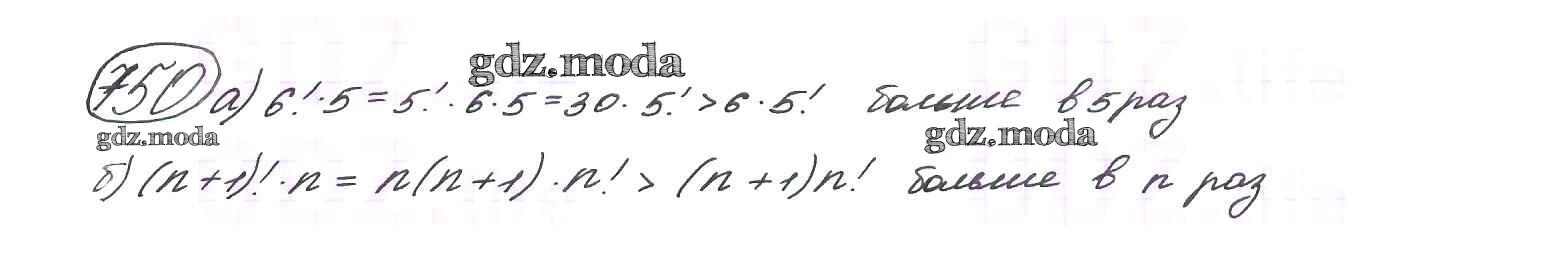 gdz.moda
750 а) 6!·5 = 5!·6·5 = 30·5! > 6·5! больше в 5 раз
gdz.moda gdz.moda
б) (n+1)!·n = n(n+1)·n! > (n+1)n! больше в n раз